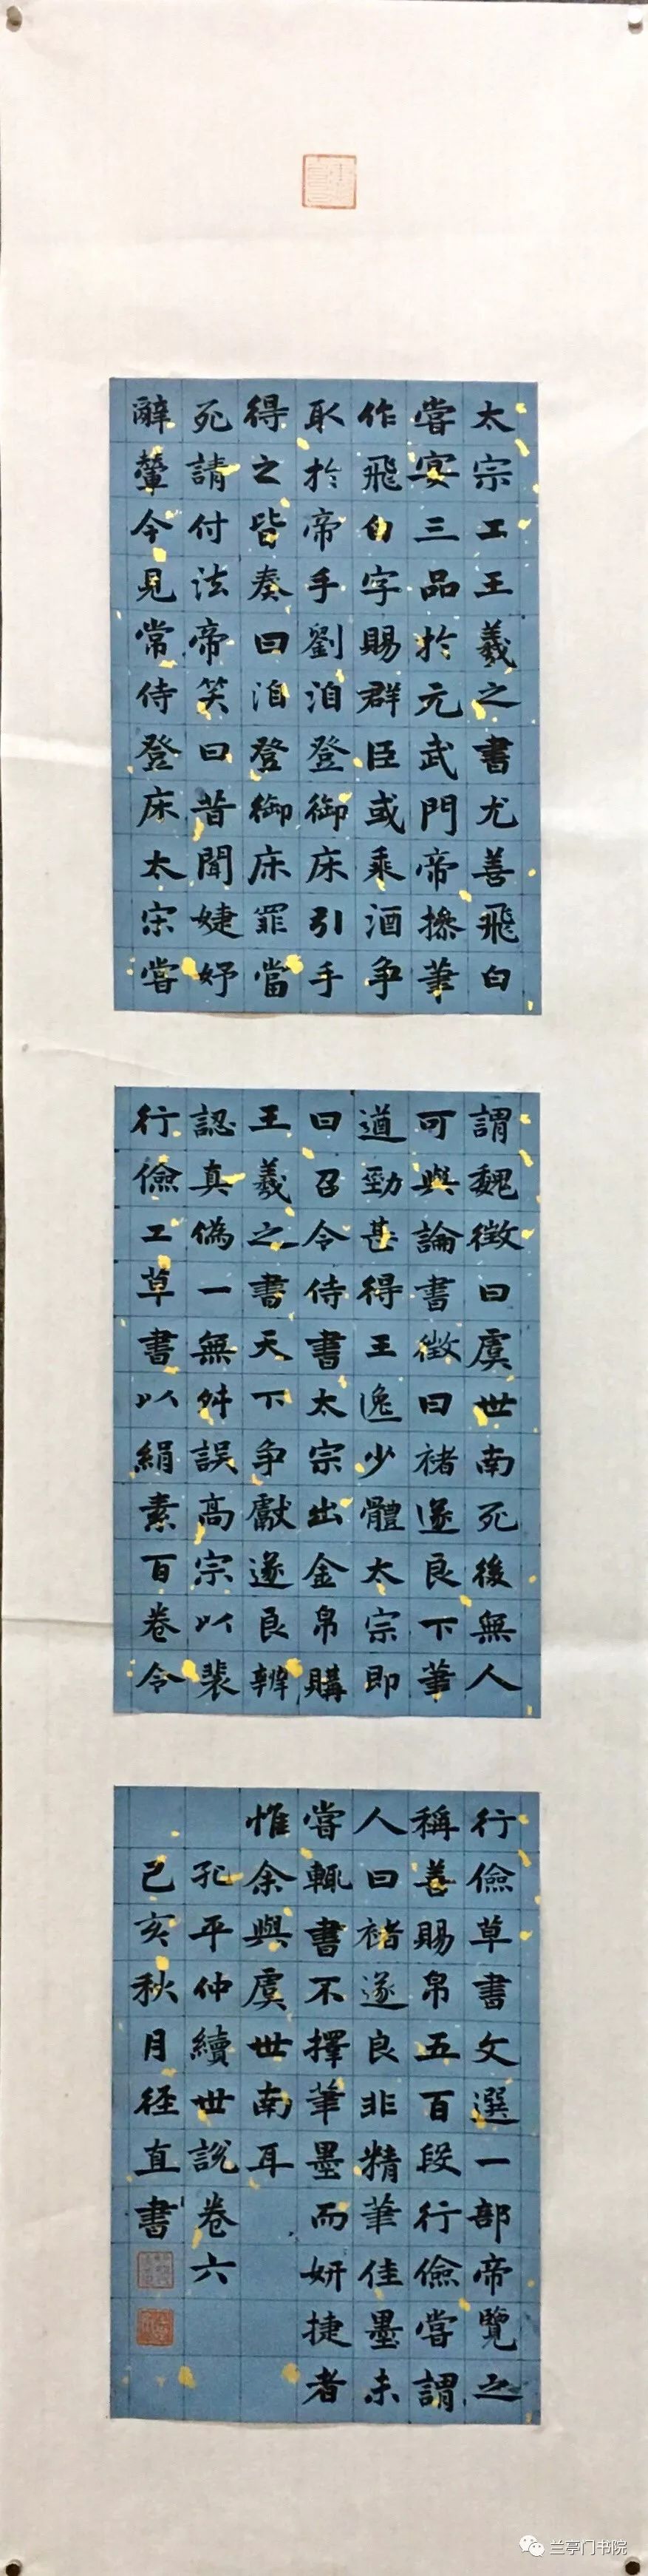 太宗工王羲之書尤善飛白
嘗宴三品於元武門帝操筆
作飛白字賜群臣或乘酒爭
取於帝手劉洎登御床引手
得之皆奏曰洎登御床罪當
死請付法帝笑曰昔聞婕妤
辭輦今見常侍登床太宗嘗
謂魏徵曰虞世南死後無人
可與論書徵曰褚遂良下筆
遒勁甚得王逸少體太宗即
日召令侍書太宗出金帛購
王羲之書天下爭獻遂良辨
認真偽一無舛誤高宗以裴
行儉工草書以絹素百卷令
行儉草書文選一部帝覽之
稱善賜帛五百段行儉嘗謂
人曰褚遂良非精筆佳墨未
嘗輒書不擇筆墨而妍捷者
惟余與虞世南耳
孔平仲續世說卷六
己亥秋月径直書
兰亭门书院